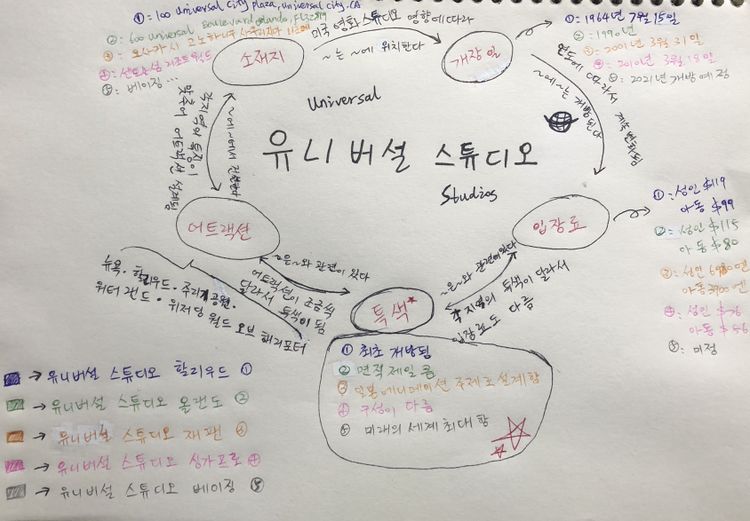 ①: 100 universal city plaza, universal city, CA
②: 600 universal boulevard orlando, FL 32819
③: 오사카시 고노하나구
④: 센토사섬 리조트 월드
⑤: 베이징 …
미국 영화 스튜디오 영향에 따라
~는 ~에 위치한다
소재지
개장일
①: 1964년 7월 15일
②: 1990년
③: 2001년 3월 31일
④: 2010년 3월 18일
⑤: 2021년 개방 예정
~에 ~는 개방된다
연도에 따라서 계속 변화됨
각 지역의 특징이
맞추어 어트랙션 설계됨
~에 ~에서 진행한다
Universal
유니버설 스튜디오
Studios
어트랙션
입장료
①: 성인 $119
아동 $99
②: 성인 $115
아동 $80
③: 성인 6980엔
아동 3900엔
④: 성인 $76
아동 $56
⑤: 미정
~은 ~와 관련이 있다
어트랙션이 조금씩
달라서 특색이 됨
~은 ~와 관련이 있다
각 지역의 특색이 달라서
입장료도 다름
뉴욕·할리우드·주라기공원·
워터랜드·위저딩 월드 오브 해리포터
특색*
① 최초 개방됨
② 면적 제일 큼
③ 일본 애니메이션 주제로 설계함
④ 구성이 다름
⑤ 미래의 세계 최대 함
→ 유니버설 스튜디오 할리우드 ①
→ 유니버설 스튜디오 올랜도 ②
→ 유니버설 스튜디오 재팬 ③
→ 유니버설 스튜디오 싱가포르 ④
→ 유니버설 스튜디오 베이징 ⑤